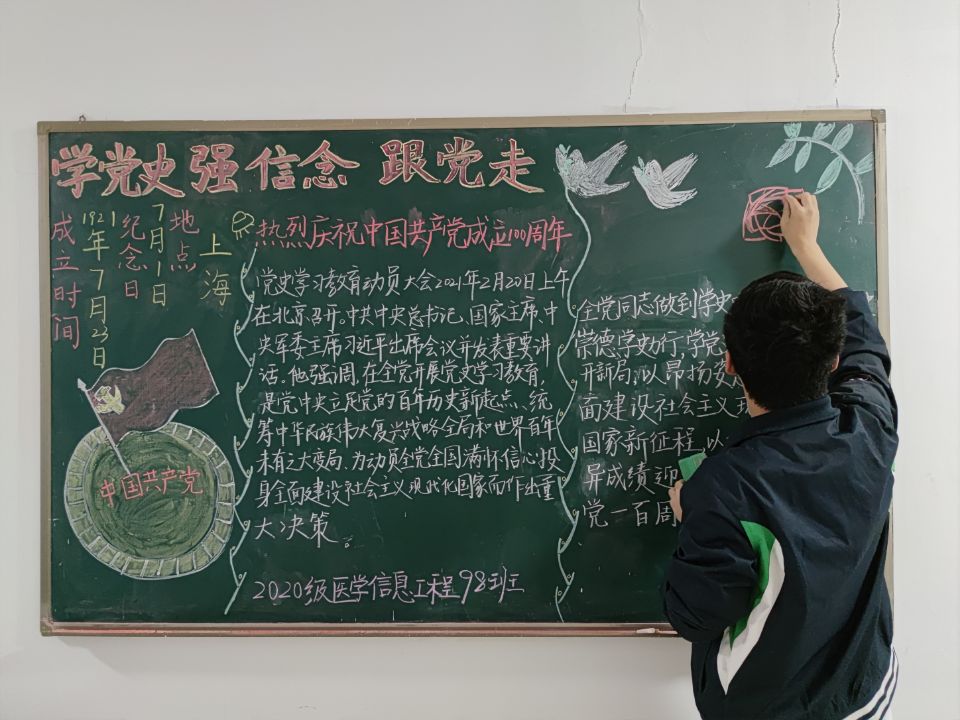 学党史 强信念 跟党走
成立时间
1921年7月23日
纪念日
7月1日
地点
上海
中国共产党
热烈庆祝中国共产党成立100周年
党史学习教育动员大会2021年2月20日上午
在北京召开。中共中央总书记、国家主席、中
央军委主席习近平出席会议并发表重要讲
话。他强调,在全党开展党史学习教育,
是党中央立足党的百年历史新起点、统
筹中华民族伟大复兴战略全局和世界百年
未有之大变局、为动员全党全国满怀信心投
身全面建设社会主义现代化国家而作出重
大决策。
2020级医学信息工程98班
全党同志做到学史
崇德学史力行,学党
开新局,以昂扬姿
面建设社会主义现
国家新征程,以
异成绩迎
党一百周